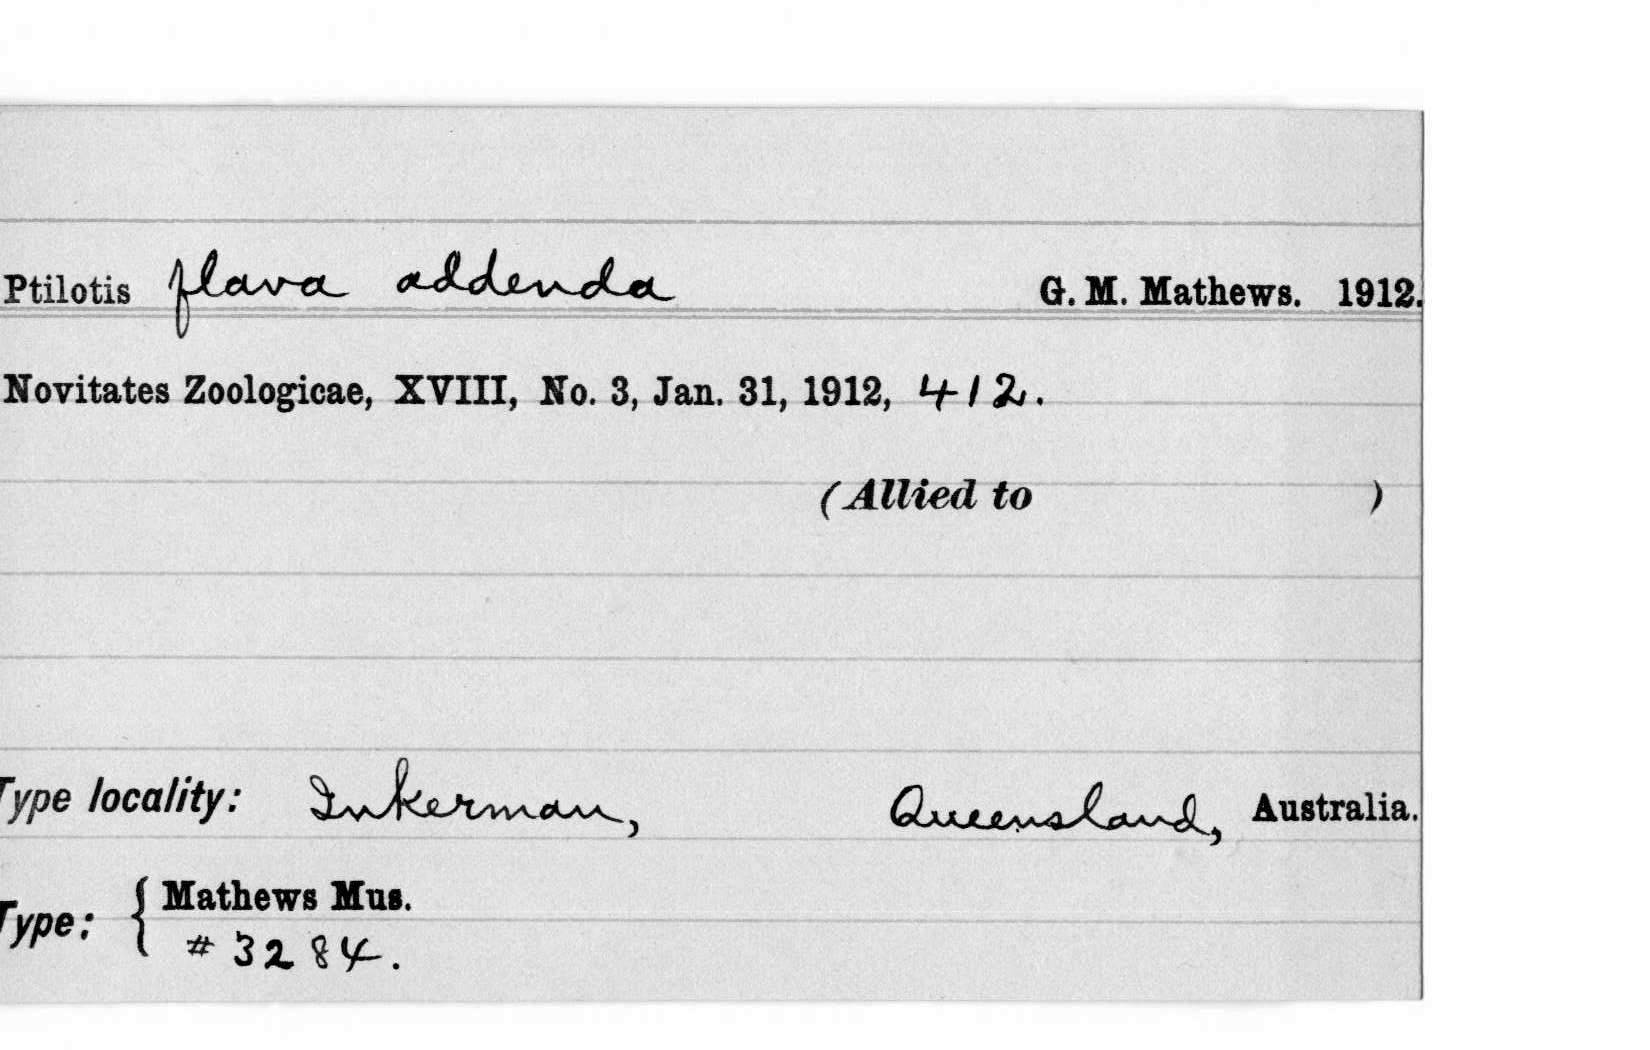 Ptilotis flava addenda G. M. Mathews. 1912.
Novitates Zoologicae, XVIII, No. 3, Jan. 31, 1912, 412.
(Allied to )
Type locality: Inkerman, Queensland, Australia.
Type: { Mathews Mus.
# 3284.